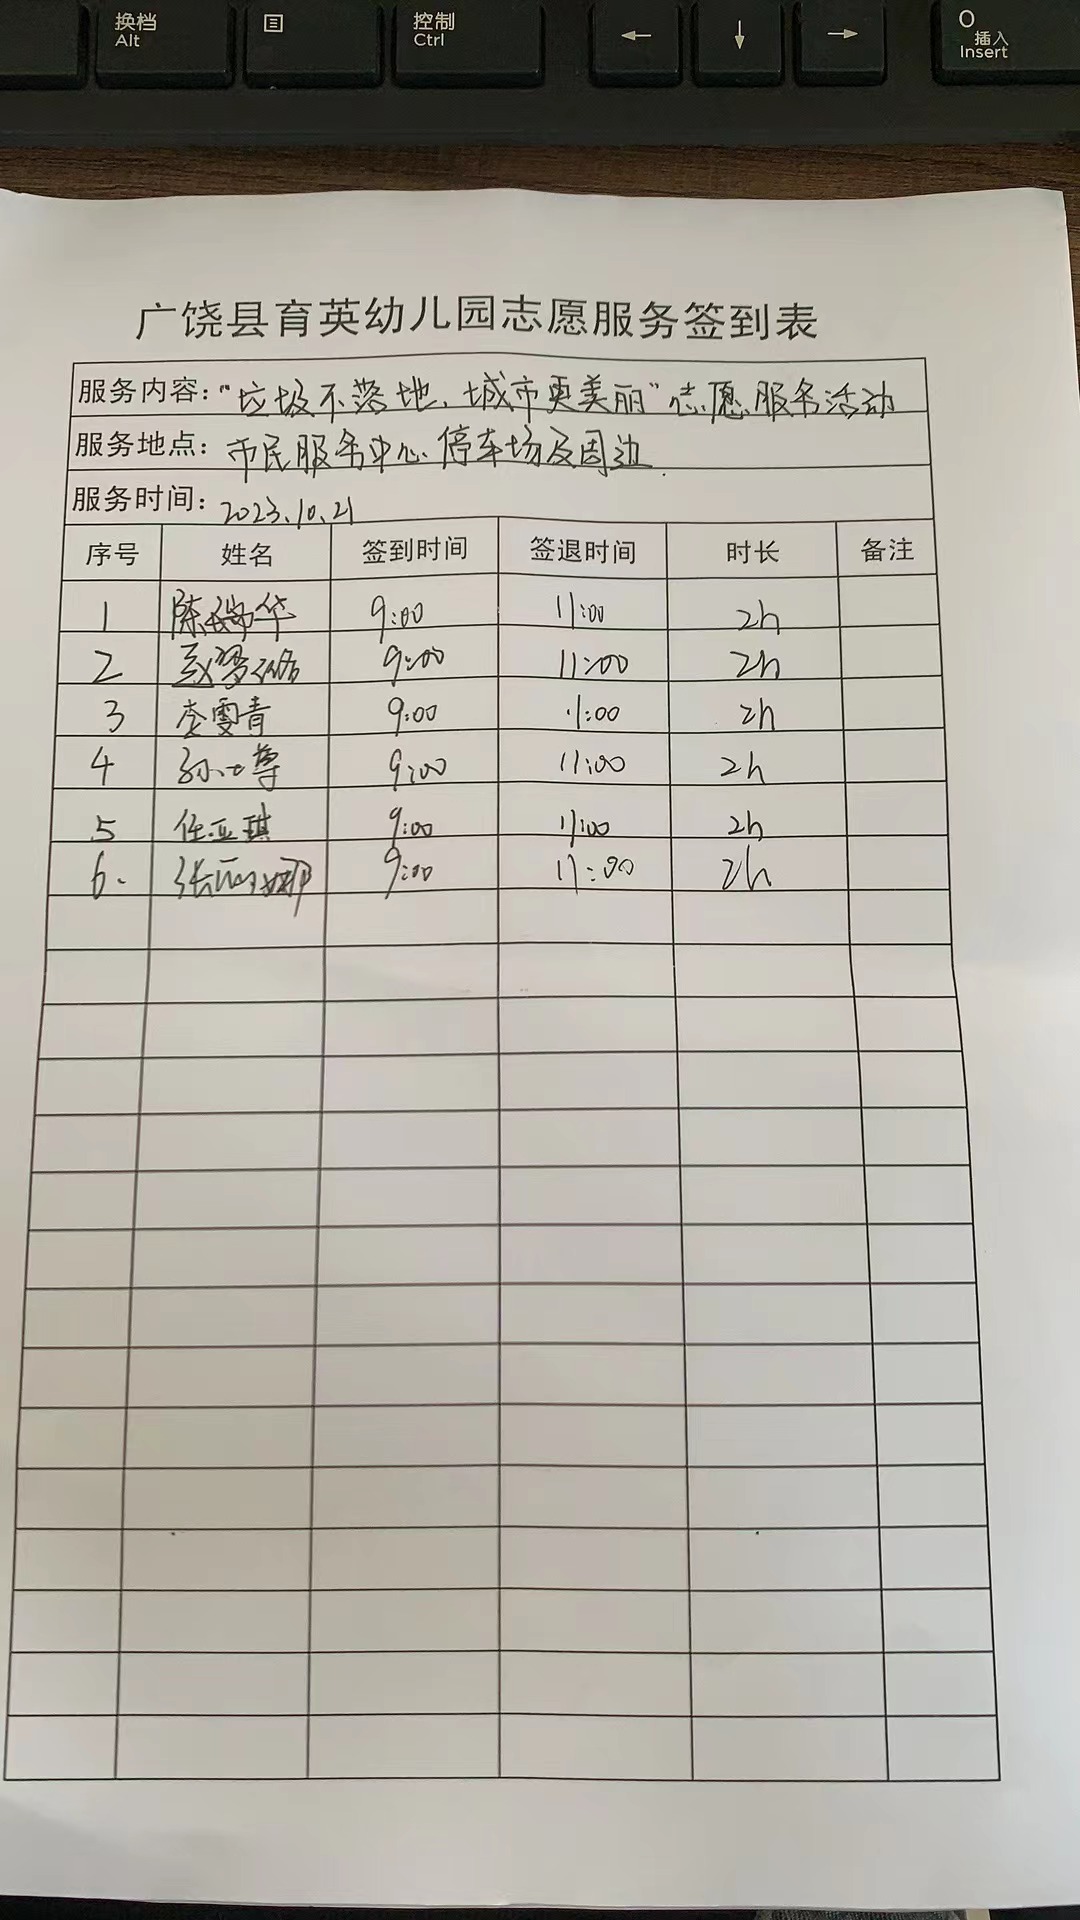 换档
Alt
控制
Ctrl
←
↓
→
0
插入
Insert
广饶县育英幼儿园志愿服务签到表
服务内容："垃圾不落地,城市更美丽"志愿服务活动
服务地点：市民服务中心停车场及周边.
服务时间：2023.10.21
序号 姓名 签到时间 签退时间 时长 备注
1 陈瑞华 9:00 11:00 2h
2 9:00 11:00 2h
3 李雯青 9:00 11:00 2h
4 9:00 11:00 2h
5 任亚琪 9:00 11:00 2h
6. 张丽娜 9:00 11:00 2h